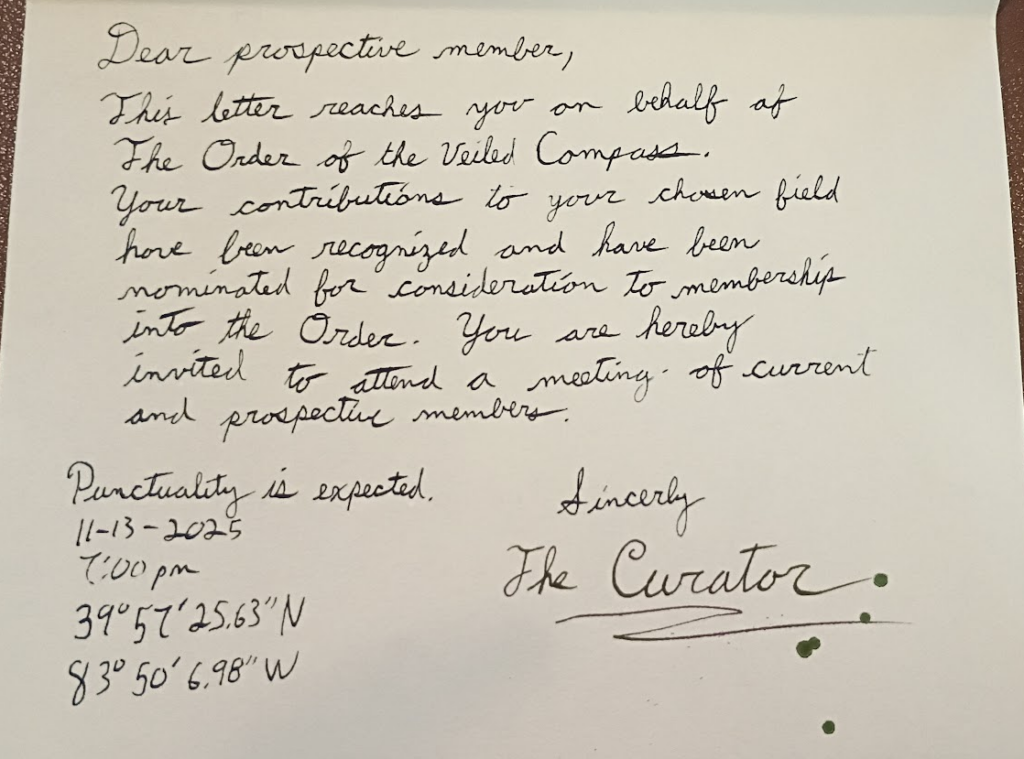 Dear prospective member,
This letter reaches you on behalf of
The Order of the Veiled Compass.
Your contributions to your chosen field
have been recognized and have been
nominated for consideration to membership
into the Order. You are hereby
invited to attend a meeting of current
and prospective members.
Punctuality is expected.
11-13-2025
7:00 pm
39°57'25.63"N
83°50'6.98"W
Sincerly
The Curator